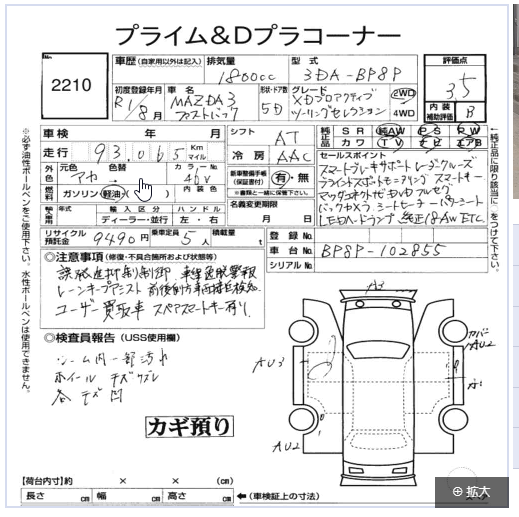 プライム&Dプラコーナー
No.
2210
車歴(自家用以外は記入)
排気量 1800cc
型式 3DA-BP8P
評価点
3.5
初度登録年月 R1/8月
車名 MAZDA3 ファストバック
形状・ドア数 5D
グレード XDプロアクティブ ツーリングセレクション
2WD
4WD
内装補助評価 B
車検 年 月
シフト AT
純正品 SR 純AW PS PW
カワ TV ナビ エアB
走行 93,065 Km マイル
冷房 AAC
セールスポイント
スマートブレーキサポート レーダークルーズ
ブラインドスポットモニタリング スマートキー
LEDヘッドランプ 純正18AW ETC
外色 元色 アカ 色替 →
カラーNo. 41V
新車整備手帳(保証書付) 有・無
★書類と一緒に保管下さい。
燃料 ガソリン・軽油・( )
内装色
名義変更期限 月 日
輸入車用 年式 輸入区分 ディーラー・並行 ハンドル 左・右
登録No.
リサイクル預託金 9490円
乗車定員 5人
積載量 t
車台No. BP8P-102855
シリアルNo.
◎注意事項(修復・不具合箇所および状態等)
誤発進抑制制御 車線逸脱警報
レーンキープアシスト 前後側方車両接近検知
ユーザー買取車 スペアスマートキー有り
◎検査員報告(USS使用欄)
シーム内一部汚れ
ホイール キズスレ
各キズ凹
カギ預り
A3
AU3
カバーAU2
AU2
【荷台内寸】約 × × (cm)
長さ cm 幅 cm 高さ cm ←(車検証上の寸法)
※必ず油性ボールペンをご使用下さい。水性ボールペンは使用できません。
←純正品に限り該当に○をつけて下さい。
拡大